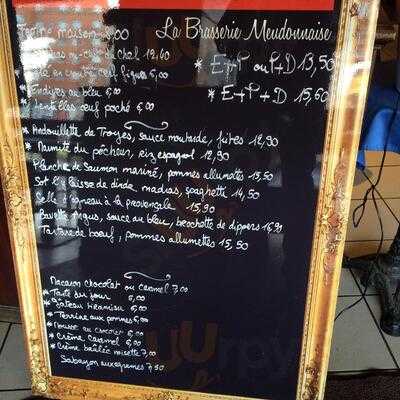 La Brasserie Meudonnaise
maison 8,00
12,40
* E+P ou P+D 13,50
en croûte figues 6,00
* Endives au bleu 6,00
* E+P+D 15,60
* Lentilles œuf poché 6,00
* Andouillette de Troyes, sauce moutarde, frites 12,90
* Marmite du pêcheur, riz espagnol 12,90
Planche de Saumon mariné, pommes allumettes 13,50
de dinde madras, spaghetti 14,50
Selle d'agneau à la provençale 15,90
Bavette Angus, sauce au bleu, brochette de dippers 16,90
Tartare de bœuf, pommes allumettes 15,50
Macaron chocolat ou caramel 7,00
* Tarte du jour 6,00
* Gâteau tiramisu 6,00
* Terrine aux pommes 6,00
* Mousse au chocolat 6,00
* Crème caramel 6,00
* Crème brûlée noisette 7,00
Sabayon aux agrumes 7,50